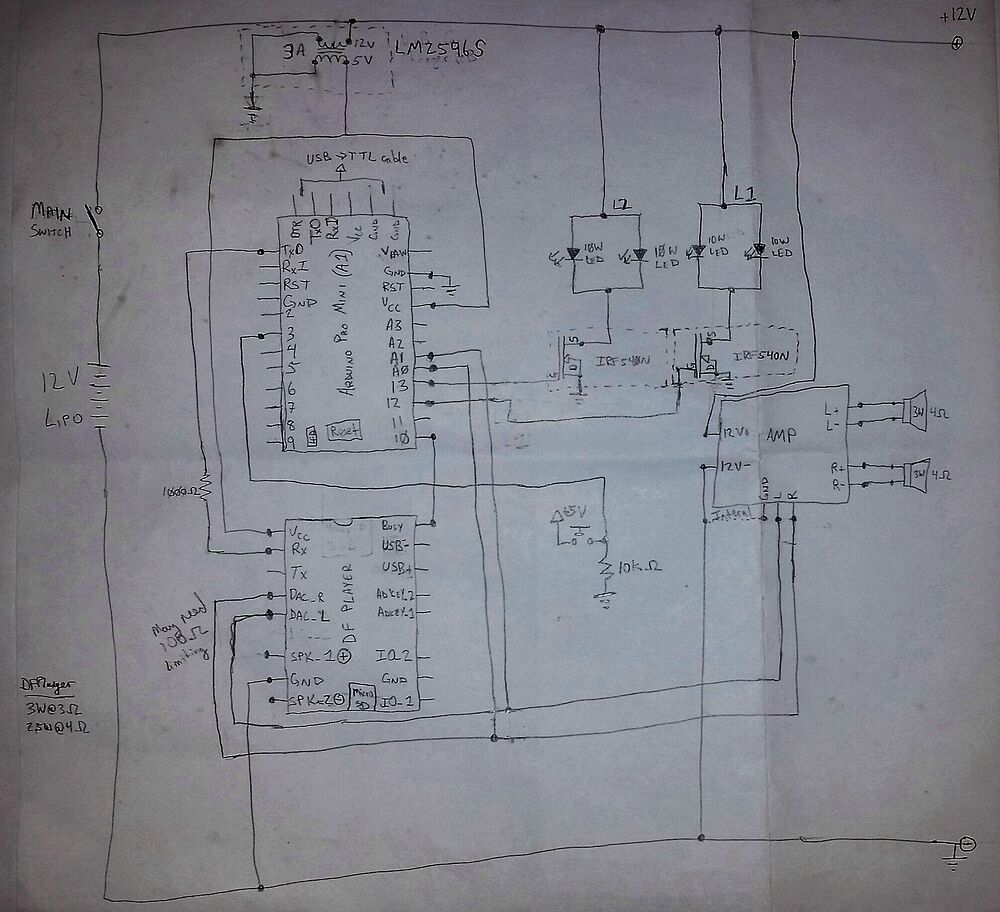 +12V
3A
12V
5V
LM2596S
USB → TTL cable
MAIN
SWITCH
12V
LiPO
DTR
TXO
RXI
VCC
GND
GND
TxO
RxI
RST
GND
2
3
4
5
6
7
8
9
ARDUINO PRO MINI (A1)
LED
Reset
VRAW
GND
RST
VCC
A3
A2
A1
A0
13
12
11
10
L2
10W
LED
10W
LED
L1
10W
LED
10W
LED
S
G
D
IRF540N
S
G
D
IRF540N
12V+
12V-
AMP
L+
L-
R+
R-
GND
L
R
Internal
3W
4Ω
3W
4Ω
1000Ω
+5V
10kΩ
VCC
Rx
Tx
DAC_R
DAC_L
SPK_1 +
GND
SPK_2 -
DF PLAYER
Micro
SD
BUSY
USB-
USB+
ADKEY_2
ADKEY_1
IO_2
GND
IO_1
May need
100Ω
limiting
DFPlayer
3W@3Ω
2.5W@4Ω